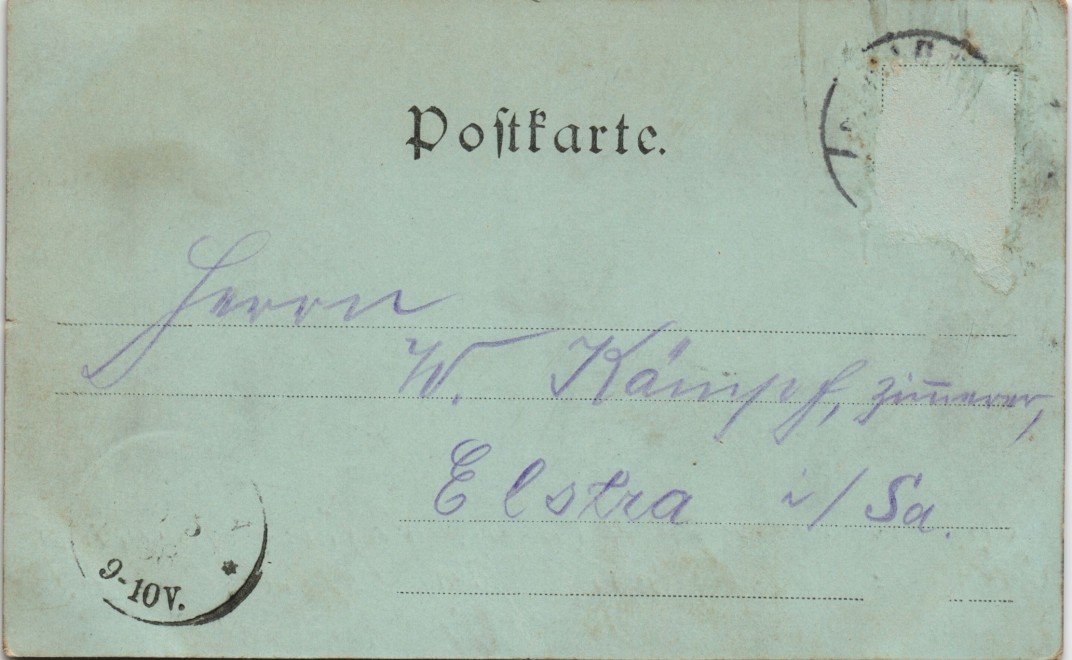 Postkarte.
Herrn
W. Kämpf, Zim̅erer,
Elstra i/Sa.
9-10V.